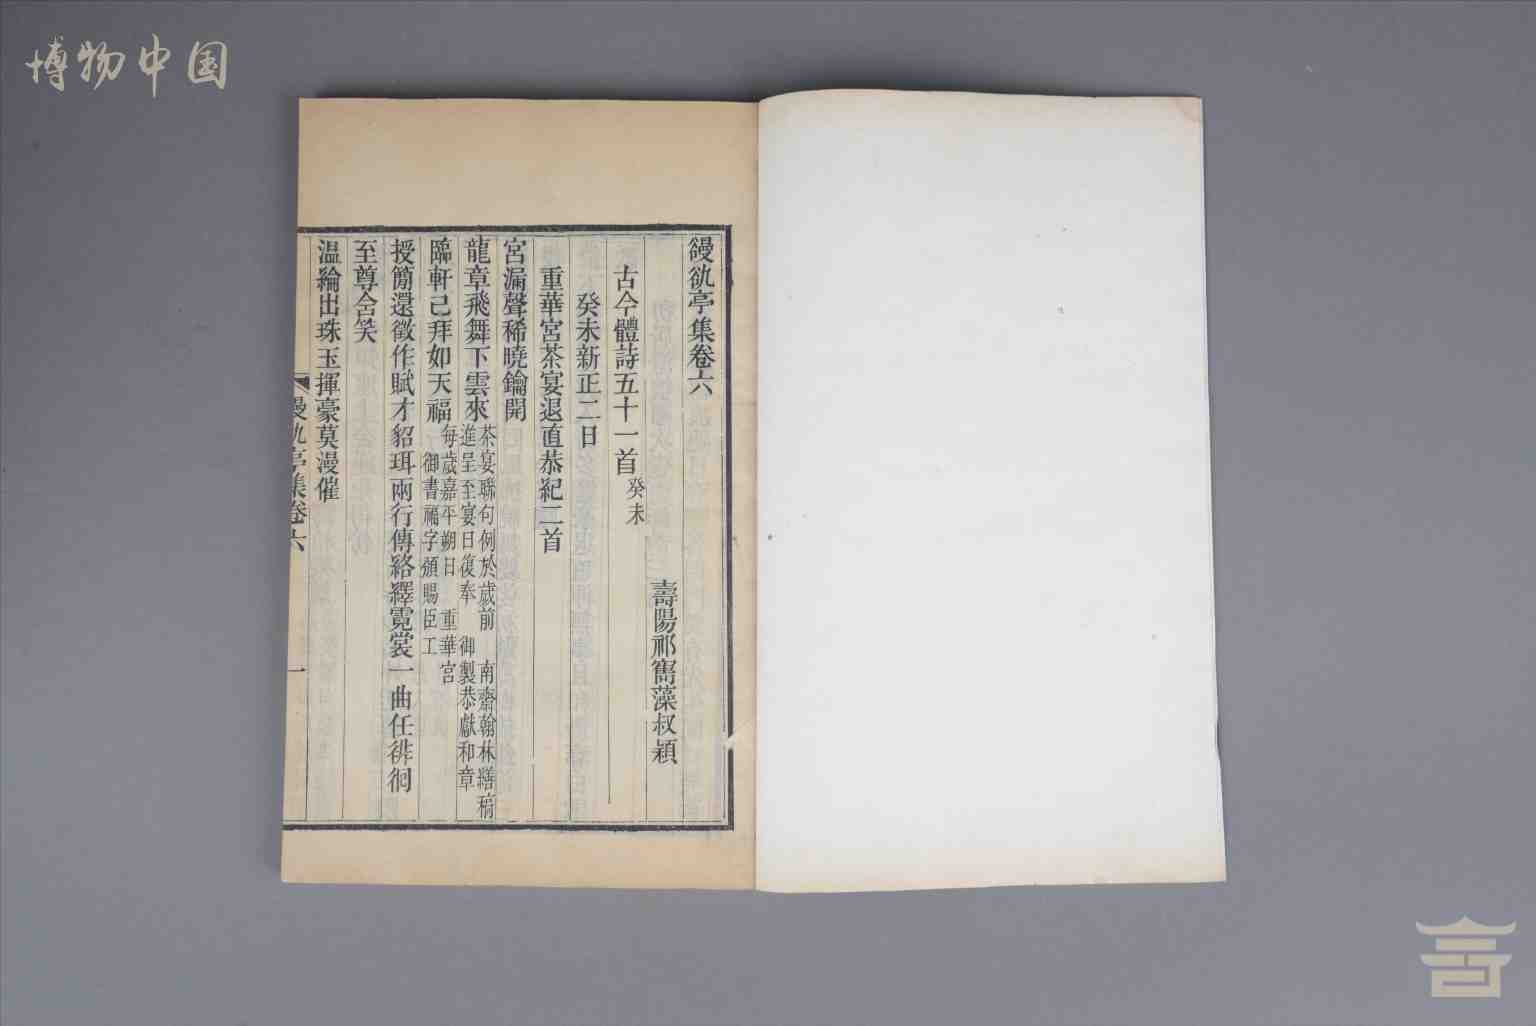 博物中国
䜱䜪亭集卷六
壽陽祁寯藻叔穎
古今體詩五十一首癸未
癸未新正二日
重華宮茶宴退直恭紀二首
宮漏聲稀曉鑰開
龍章飛舞下雲來茶宴聯句例於歲前 南齋翰林繕稿進呈至宴日復奉 御製恭獻和章
臨軒已拜如天福每歲嘉平朔日 重華宮御書福字頒賜臣工
授簡還徵作賦才貂珥兩行傳絡繹霓裳一曲任徘徊
至尊含笑
溫綸出珠玉揮豪莫漫催
䜱䜪亭集卷六
一